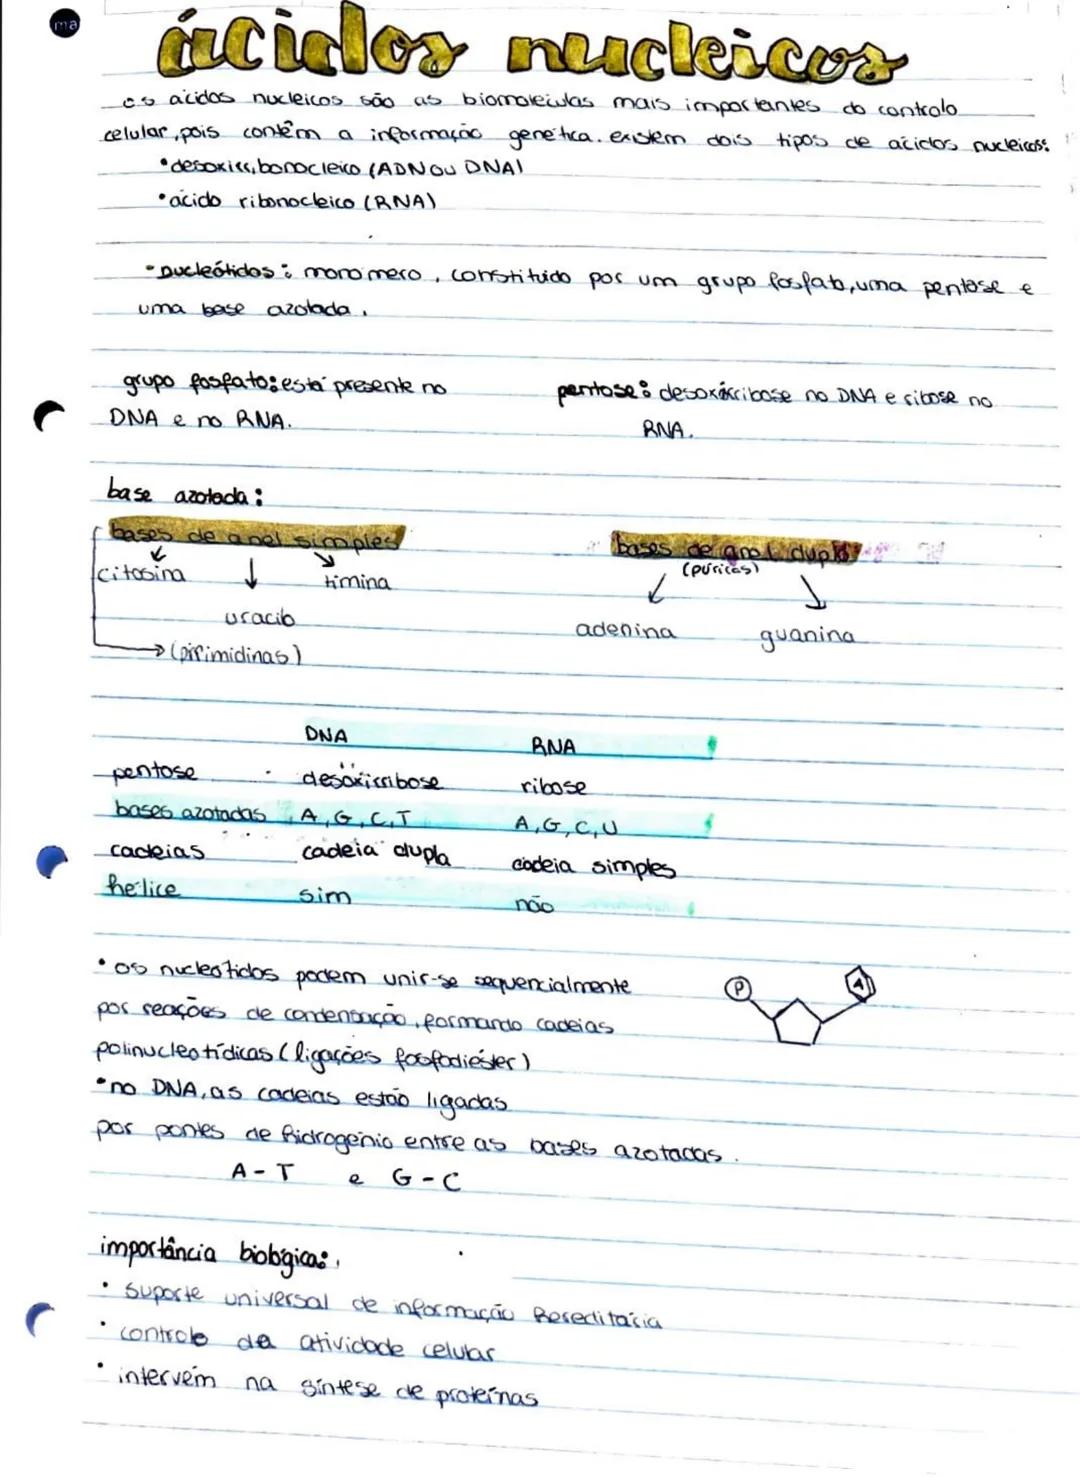 ma
ácidos nucleicos
os ácidos nucleicos são as biomoleculas mais importantes do controlo
celular, pois contêm a informação genética. existem dois tipos de ácidos nucleicos:
•desoxirribonocleico (ADN ou DNA)
•ácido ribonocleico (RNA)
-nucleótidos: monomero, constituido por um grupo fosfato, uma pentose e
uma base azotada.
grupo fosfato: está presente no
DNA e no RNA.
pentose: desoxirribose no DNA e ribose no
RNA.
base azotada:
bases de anel simples
citosina
timina
uracilo
→ (pirimidinas)
bases de anel duplo
(púricas)
adenina
guanina
DNA RNA
pentose desoxirribose ribose
bases azotadas A, G, C, T A, G, C, U
cadeias cadeia dupla cadeia simples
hélice sim não
•os nucleotidos podem unir-se sequencialmente
por reações de condensação, formando cadeias
polinucleotídicas (ligações fosfodiéster)
P
A
•no DNA, as cadeias estão ligadas
por pontes de hidrogénio entre as bases azotadas.
A - T e G - C
importância biológica:
• suporte universal de informação hereditária
• controlo da atividade celular
• intervém na síntese de proteínas